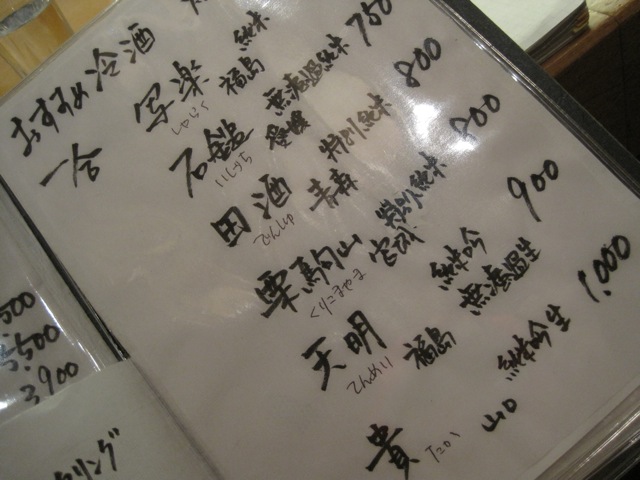 おすすめ冷酒
一合
写楽 福島 純米
しゃらく
石鎚 愛媛 無濾過純米 750
いしづち
田酒 青森 特別純米 800
でんしゅ
栗駒山 宮城 特別純米 800
くりこまやま
天明 福島 純吟 無濾過生 900
てんめい
貴 山口 純米吟生 1.000
たか
500
3,900
リング